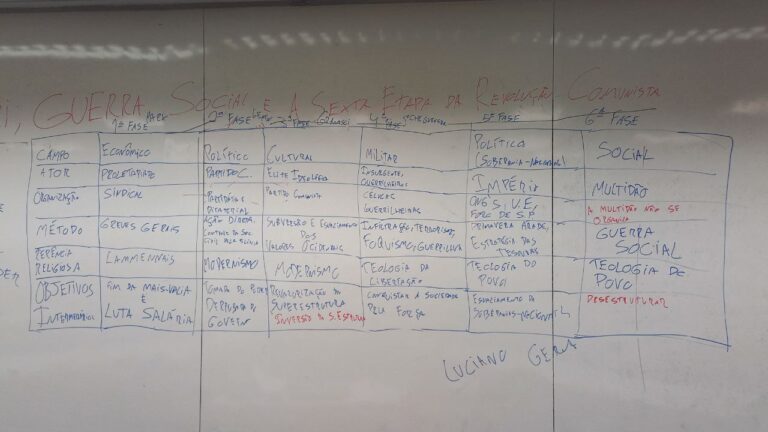 GUERRA SOCIAL E A SEXTA ETAPA DA REVOLUÇÃO COMUNISTA
MARX
1ª FASE
2ª FASE
3ª FASE GRAMSCI
4ª FASE CHE GUEVARA
5ª FASE
6ª FASE
CAMPO
ECONÔMICO
POLÍTICO
CULTURAL
MILITAR
POLÍTICA
(SOBERANIA-NACIONAL)
SOCIAL
ATOR
PROLETARIADO
PARTIDO C.
ELITE IDEOLÓGICA
INSURGENTE,
GUERRILHEIROS
IMPÉRIO
MULTIDÃO
ORGANIZAÇÃO
SINDICAL
PARTIDÁRIA E
DITATORIAL
PARTIDO COMUNISTA
CÉLULAS
GUERRILHEIRAS
FORO DE S.P
A MULTIDÃO NÃO SE
ORGANIZA
MÉTODO
GREVES GERAIS
AÇÃO DIRETA,
SUBVERSÃO E ESVAZIAMENTO
DOS
VALORES OCIDENTAIS
INFILTRAÇÃO, TERRORISMO,
FOQUISMO, GUERRILHA
PRIMAVERA ÁRABE,
ESTRATÉGIA DAS
TESOURAS
GUERRA
SOCIAL
RELIGIOSA
LAMMENNAIS
MODERNISMO
MODERNISMO
TEOLOGIA DA
LIBERTAÇÃO
TEOLOGIA DO
POVO
TEOLOGIA DE
POVO
OBJETIVOS
FIM DA MAIS-VALIA
E
LUTA SALÁRIA
TOMADA DE PODER
DERRUBADA DE
GOVERN
SUPERESTRUTURA
INVERSÃO DA S. ESTRUTURA
CONQUISTAR A SOCIEDADE
PELA FORÇA
ESVAZIAMENTO DA
DESESTRUTURAR
LUCIANO